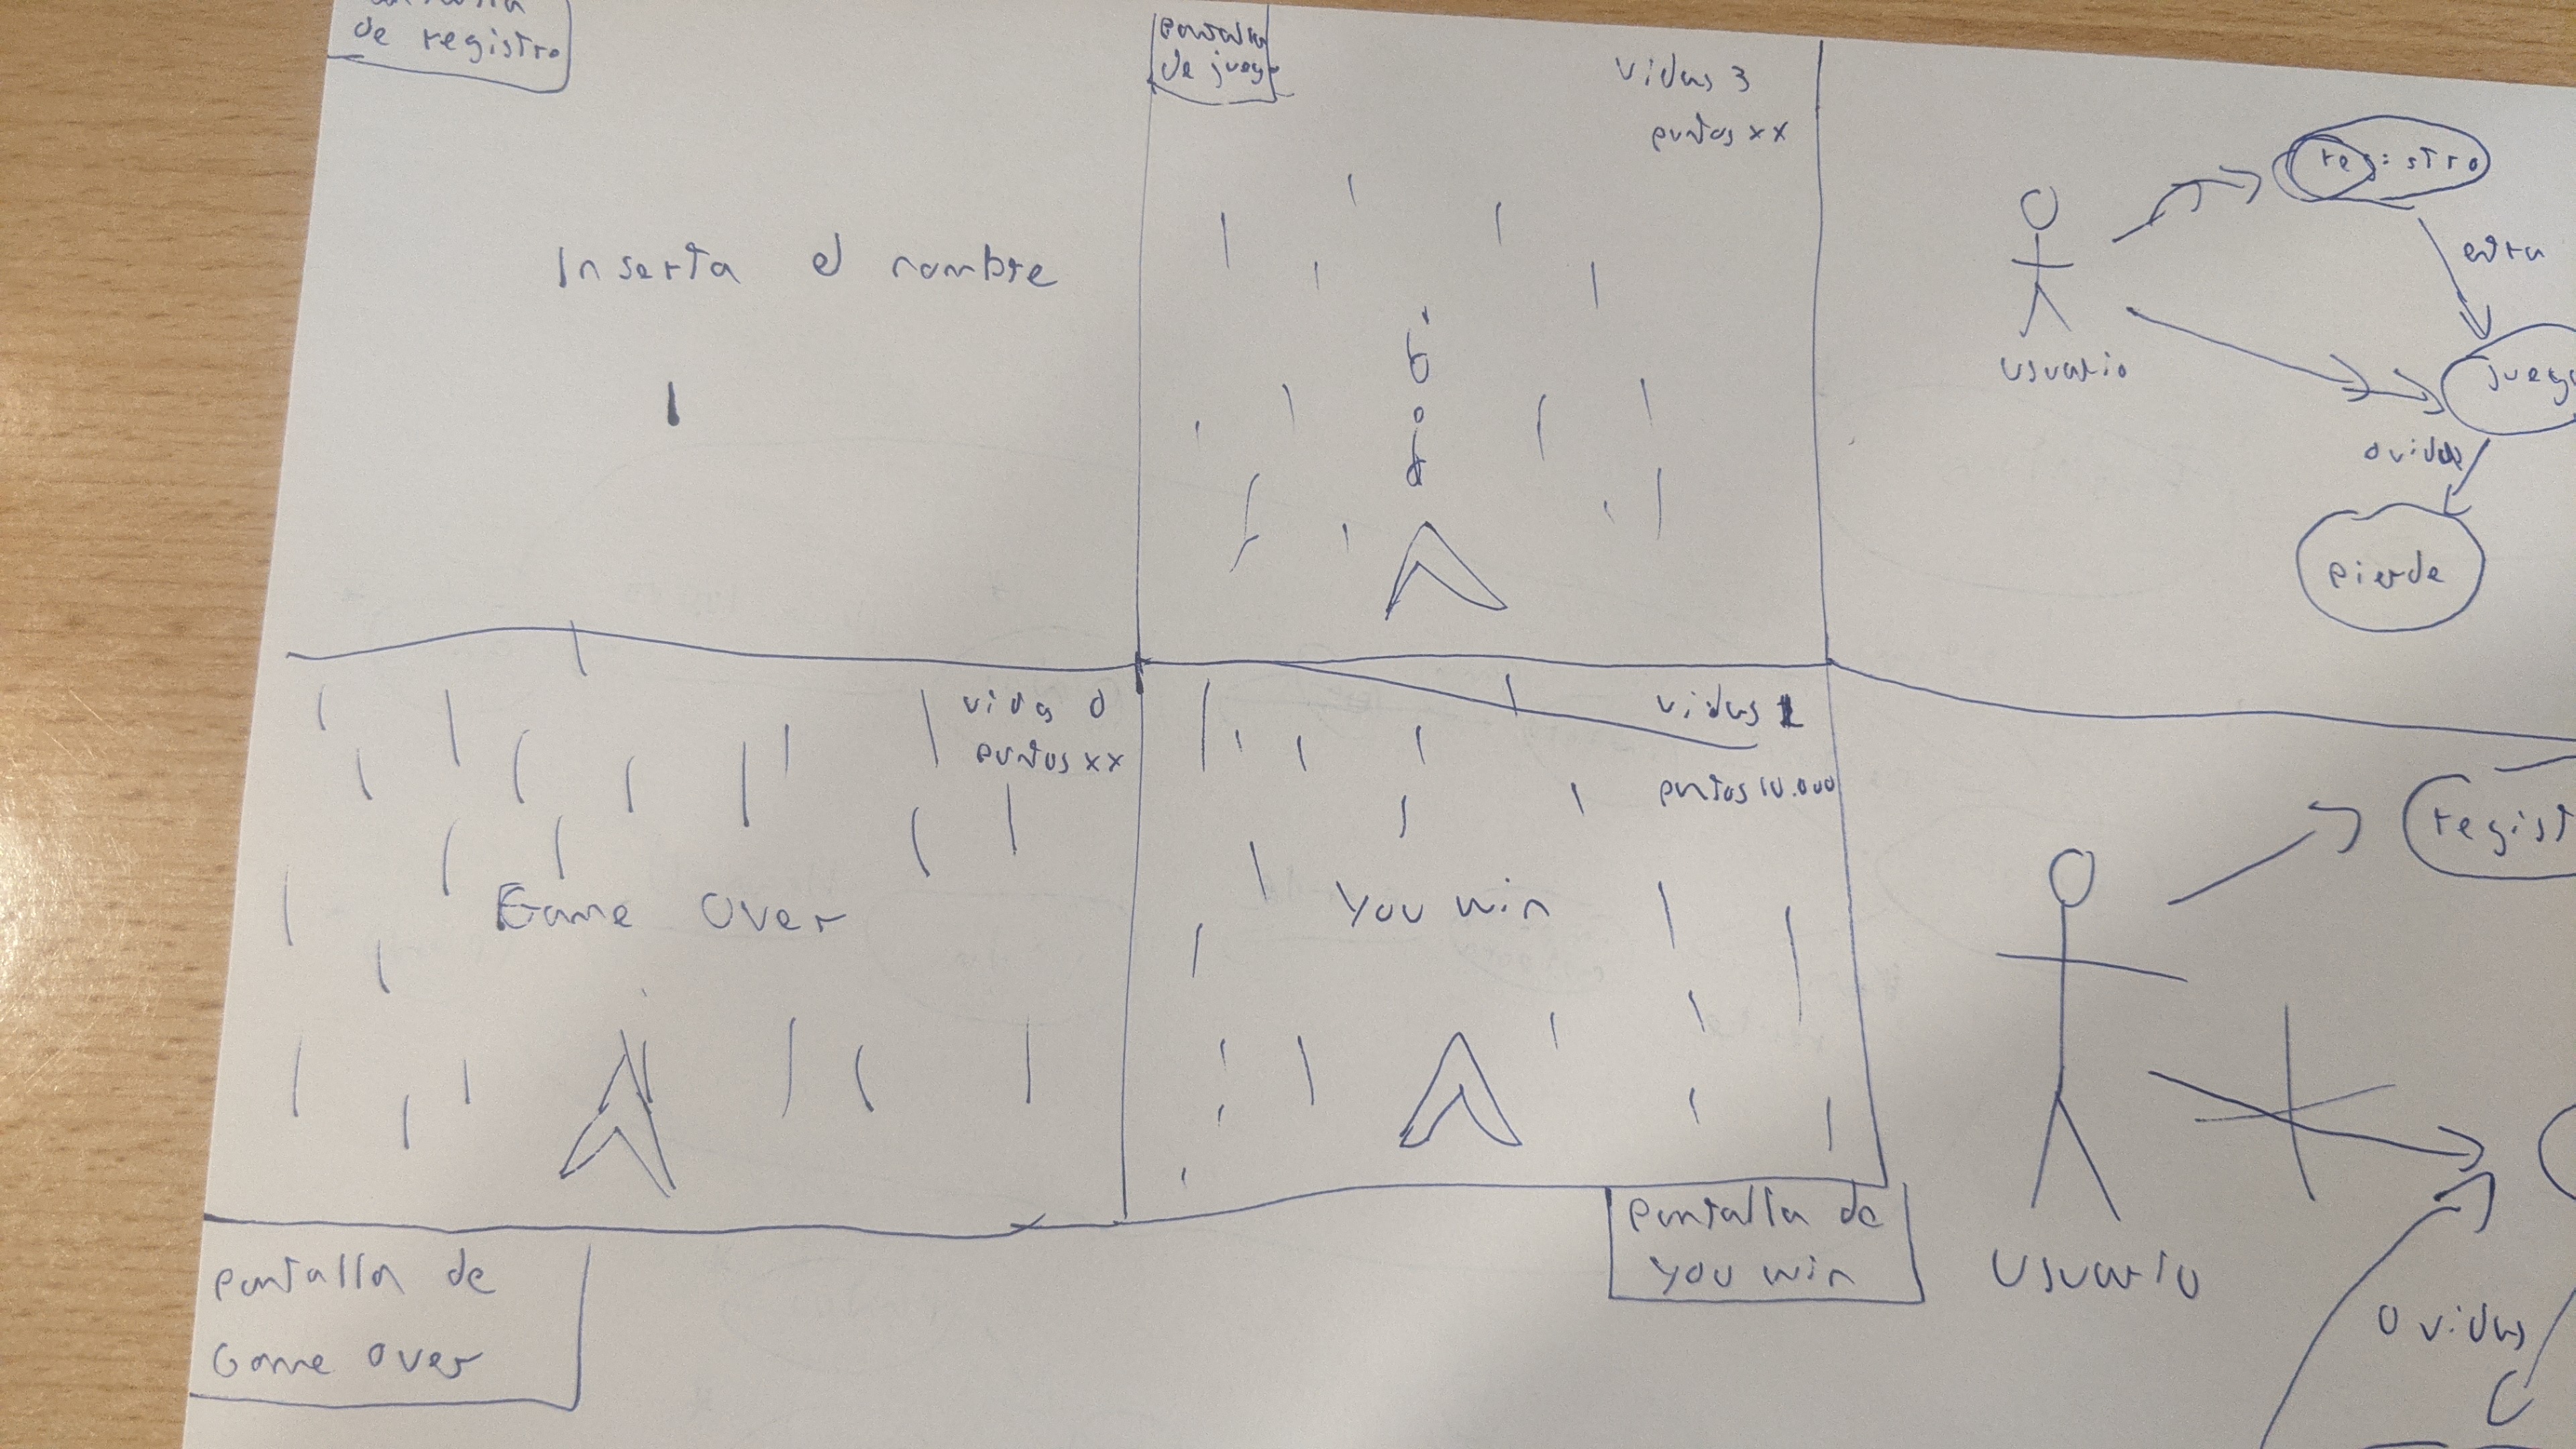 de registro
Inserta el nombre
pantalla
de juego
vidas 3
puntos xx
registro
entra
usuario
juego
0 vidas
pierde
vidas 0
puntos xx
Game Over
pantalla de
Game over
vidas 1
puntos 10.000
You win
pantalla de
you win
regist
usuario
0 vidas